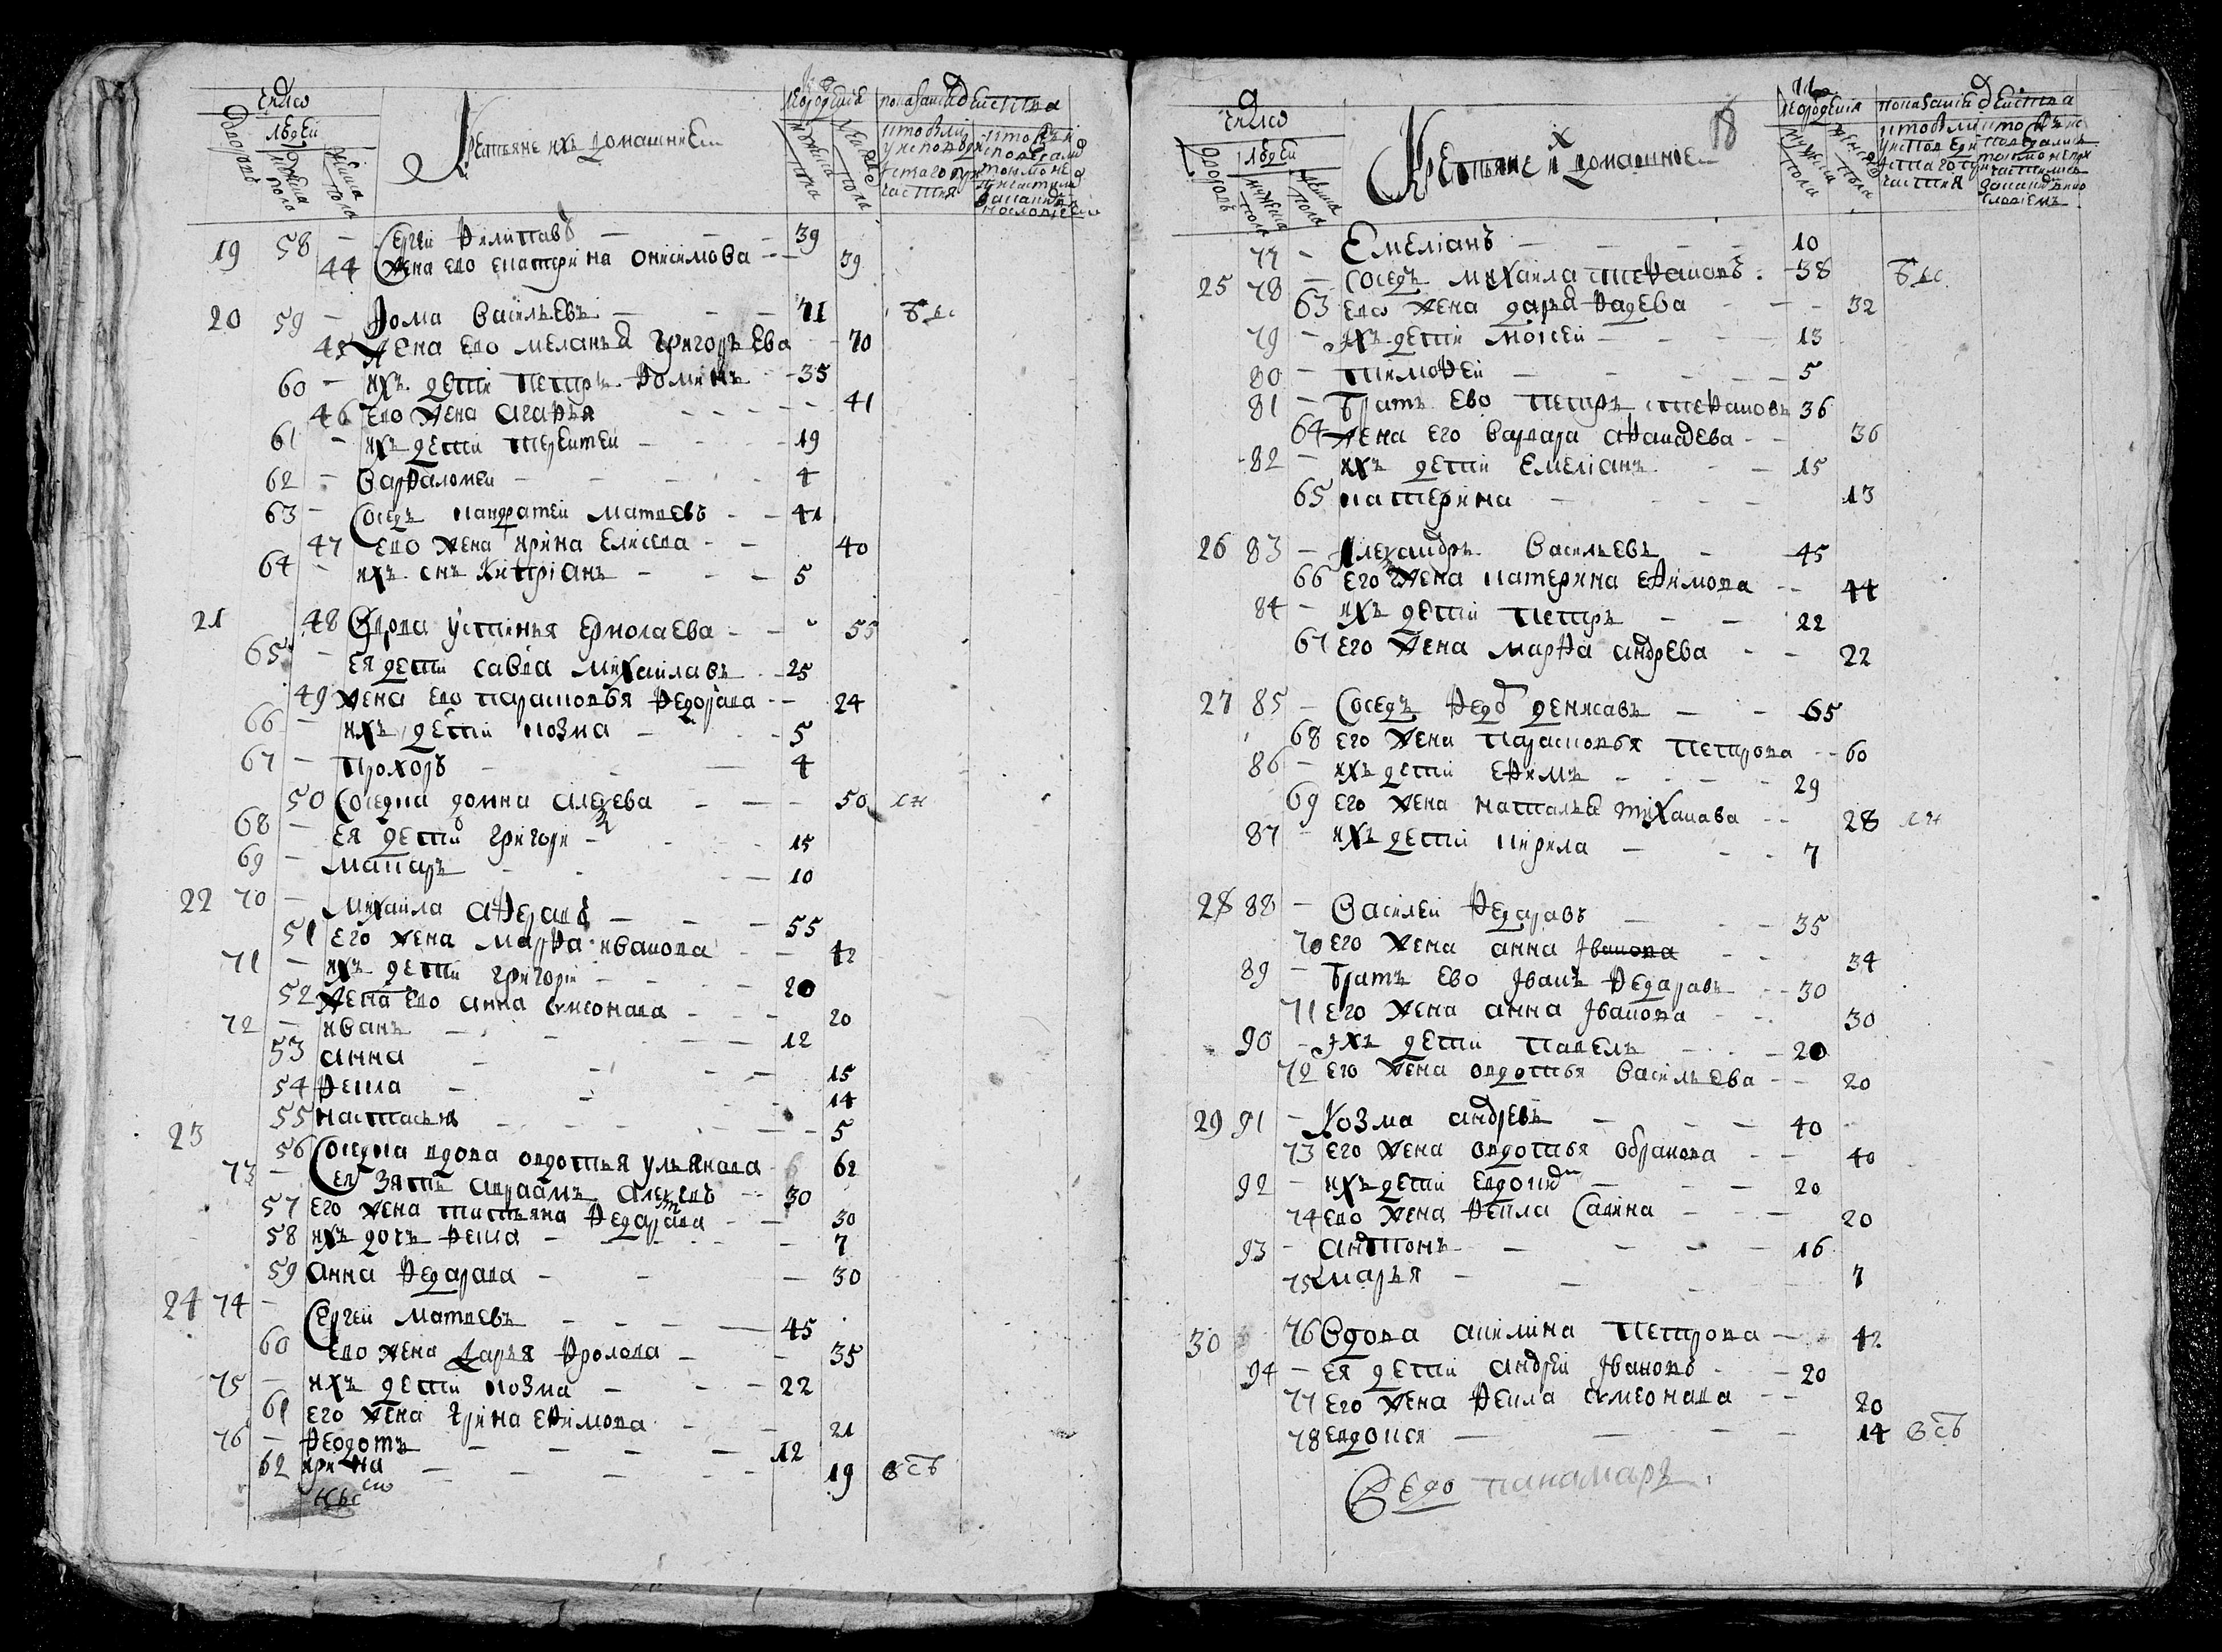 число
людей
дворовъ
мужеска пола
женска пола
Крестьяне ихъ домашнием
мужеска пола
женска пола
19 58 — Сергеи Филиповъ — 39
44 жена ево екатерина онисимова — 39
20 59 — Фома Васильевъ — 71
45 жена ево меланья григорьева — 70
60 — ихъ дети петръ Фоминъ — 35
46 ево жена агафья — 41
61 — ихъ дети терентеи — 19
62 — Варфаломеи — 4
63 — Соседъ кандратеи матвевъ — 41
47 ево жена ирина елисева — 40
64 — ихъ снъ Киприанъ — 5
21 48 Вдова устинья ермолаева — 55
65 — ея дети савва михаилавъ — 25
49 жена ево парасковья федорава — 24
66 — ихъ дети козма — 5
67 — прохоръ — 4
50 Соседка домна алеѯева — 50
68 — ея дети григори — 15
69 — макаръ — 10
22 70 — михаила афералв — 55
51 его жена марфа иванова — 42
71 — ихъ дети григореи — 20
52 жена ево анна симеонава — 20
72 — иванъ — 12
53 анна — 15
54 фекла — 14
55 настасья — 5
23 56 Соседка вдова овдотья ульянава — 62
73 — ея зять авраамъ алеѯевъ — 30
57 его жена татьяна федарава — 30
58 ихъ дочь фекла — 7
59 анна федарава — 30
24 74 — Сергеи матвевъ — 45
60 ево жена дарья фролова — 35
75 — ихъ дети козма — 22
61 его жена ирина ефимова — 21
76 — феодотъ — 12
62 ирина — 19
число
людей
дворовъ
мужеска пола
женска пола
Крестьяне ихъ домашние
18
мужеска пола
женска пола
77 — Емелианъ — 10
25 78 — соседъ михаила стефановъ — 38
63 ево жена дарья фадева — 32
79 — ихъ дети моисеи — 13
80 — тимофеи — 5
81 — братъ ево петръ стефановъ 36
64 жена его варвара афанасева — 36
82 — ихъ дети емелианъ — 15
65 катерина — 13
26 83 — Алеѯандръ Васильевъ — 45
66 его жена катерина ефимова — 44
84 — ихъ дети петръ — 22
67 его жена марфа андрева — 22
27 85 — Соседъ федо денисавъ — 65
68 его жена парасковья петрова — 60
86 — ихъ дети ефимъ — 29
69 его жена наталья тиханава — 28
87 — ихъ дети кирила — 7
28 88 — Василеи федаравъ — 35
70 его жена анна Iванова — 34
89 — братъ ево Iванъ федаравъ — 30
71 его жена анна Iванова — 30
90 — ихъ дети павелъ — 20
72 его жена овдотья васильева — 20
29 91 — Козма андревъ — 40
73 его жена овдотья обрамова — 40
92 — ихъ дети евдоким — 20
74 ево жена фекла савина — 20
93 — антонъ — 16
75 марья — 7
30 76 Вдова акилина петрова — 42
94 — ея дети андреи Iвановъ — 20
77 его жена фекла симеонава — 20
78 евдокея — 14
Федо панамаръ